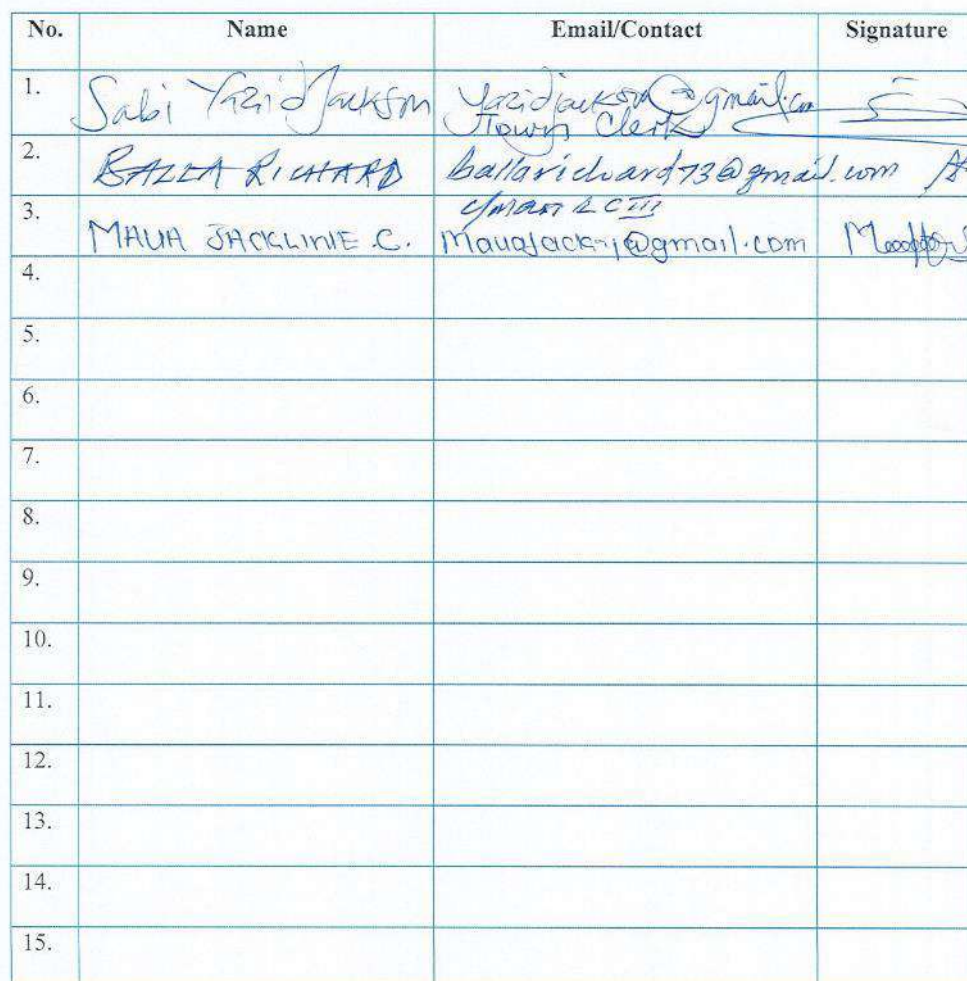 No. Name Email/Contact Signature
1. Sabi Yazid Jackson Yazidjackson@gmail.com
Town Clerk
2. BALLA RICHARD ballarichard73@gmail.com
LC III
3. MAUA JACKLINIE .C.
4.
5.
6.
7.
8.
9.
10.
11.
12.
13.
14.
15.